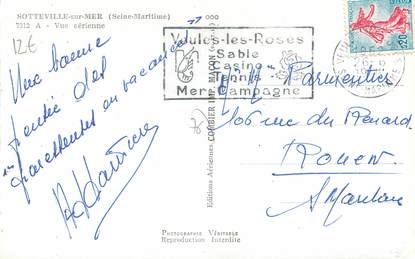 SOTTEVILLE-sur-MER (Seine-Maritime)
7312 A - Vue aérienne
12€
Une bonne
pensée des
en vacances
Veules-les-Roses
Sable
Casino
Tennis
Mer Campagne
0,20
Editions Aériennes COMBIER IMP. MACON
Parmentier
106 rue du Renard
Rouen
S Maritime
PHOTOGRAPHIE VÉRITABLE
Reproduction Interdite